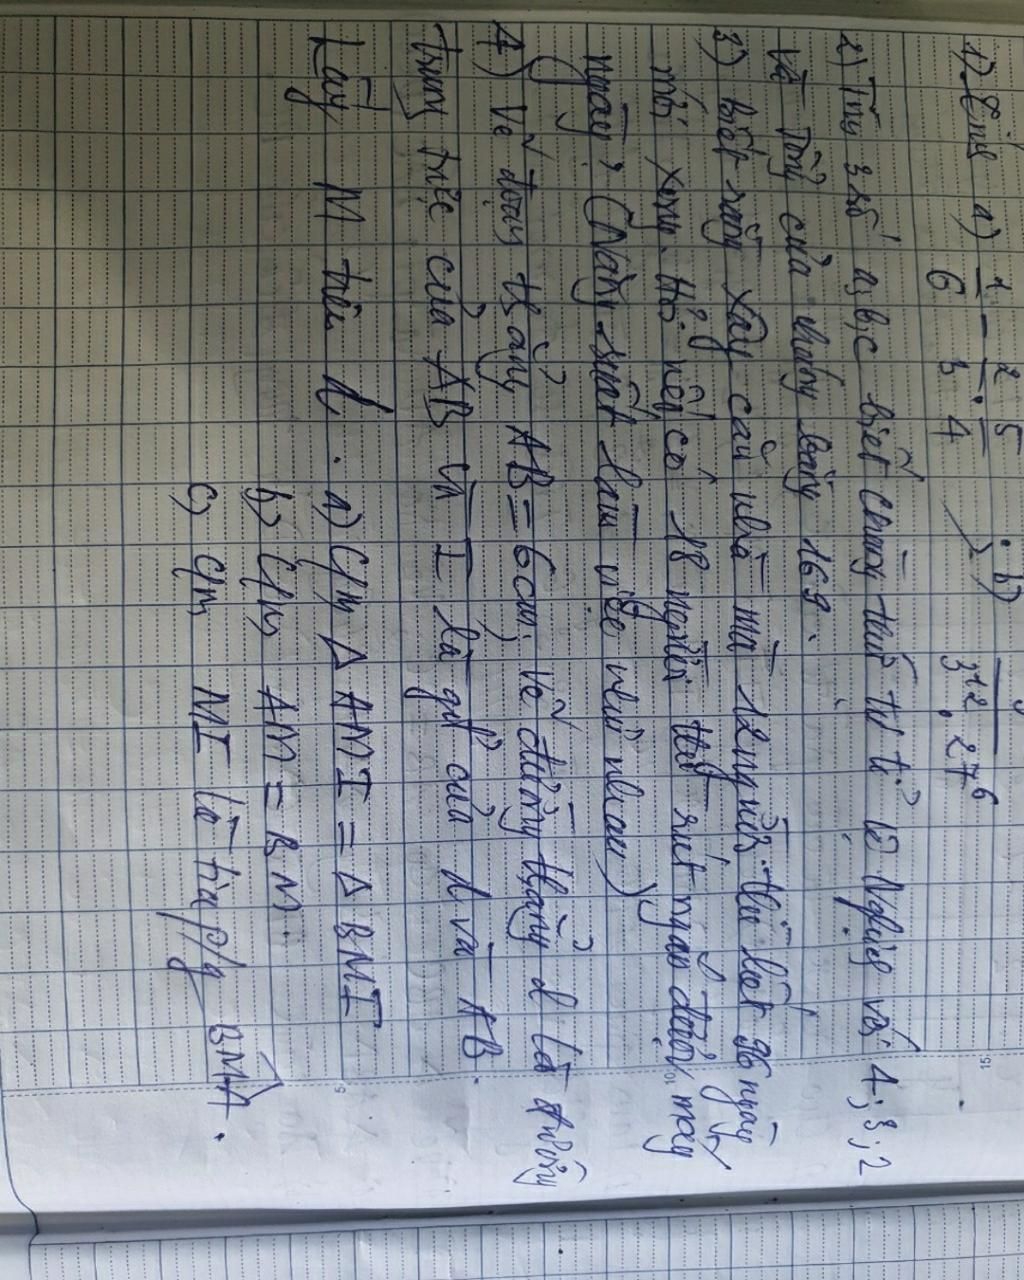 1) Tính a) 1/6 - 2/3 . 5/4 ; b) 3^12 . 27^6
2) Tìm 3 số a, b, c biết chúng thứ tự tỉ lệ nghịch với 4; 3; 2
và tổng của chúng bằng 169.
3) biết rằng xây căn nhà mà 12 người thì hết 96 ngày
mới xong. Hỏi nếu có 18 người thì rút ngắn được mấy
ngày? (Năng suất làm việc như nhau)
4) Vẽ đoạn thẳng AB = 6cm, vẽ đường thẳng d là đường
trung trực của AB và I là gđ của d và AB.
Lấy M trên d. a) Cm Δ AMI = Δ BMI
b) Cm AM = BM.
c) cm MI là tia p/g BMA.